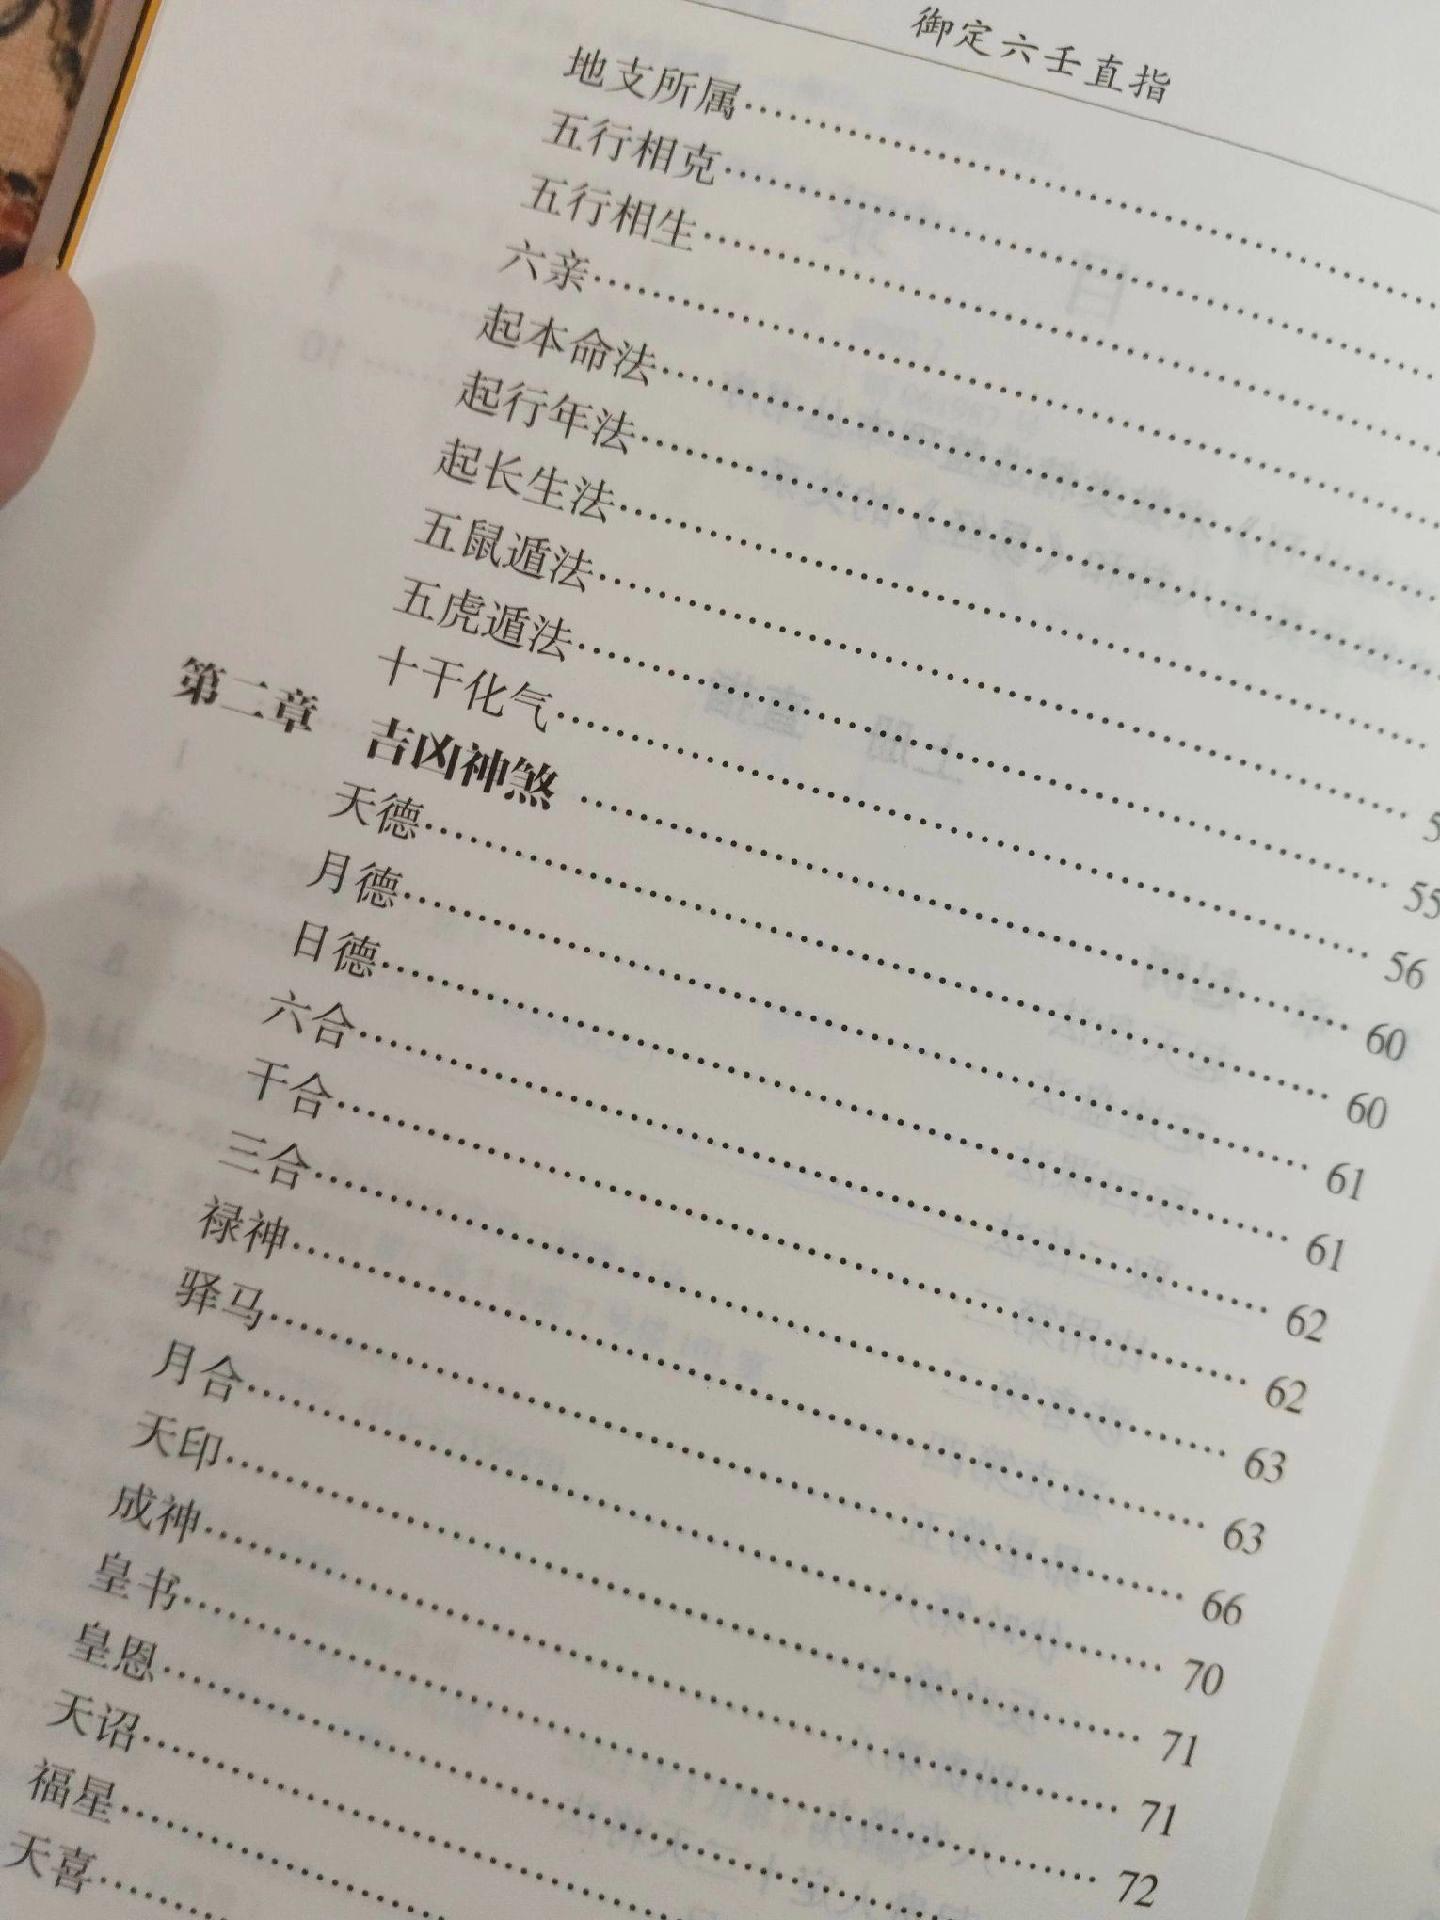 御定六壬直指
地支所属……
五行相克……
五行相生……
六亲……
起本命法……
起行年法……
起长生法……
五鼠遁法……
五虎遁法……55
十干化气……56
第二章 吉凶神煞……60
天德……60
月德……61
日德……61
六合……62
干合……62
三合……63
禄神……63
驿马……66
月合……70
天印……71
成神……71
皇书……72
皇恩……
天诏……
福星……
天喜……